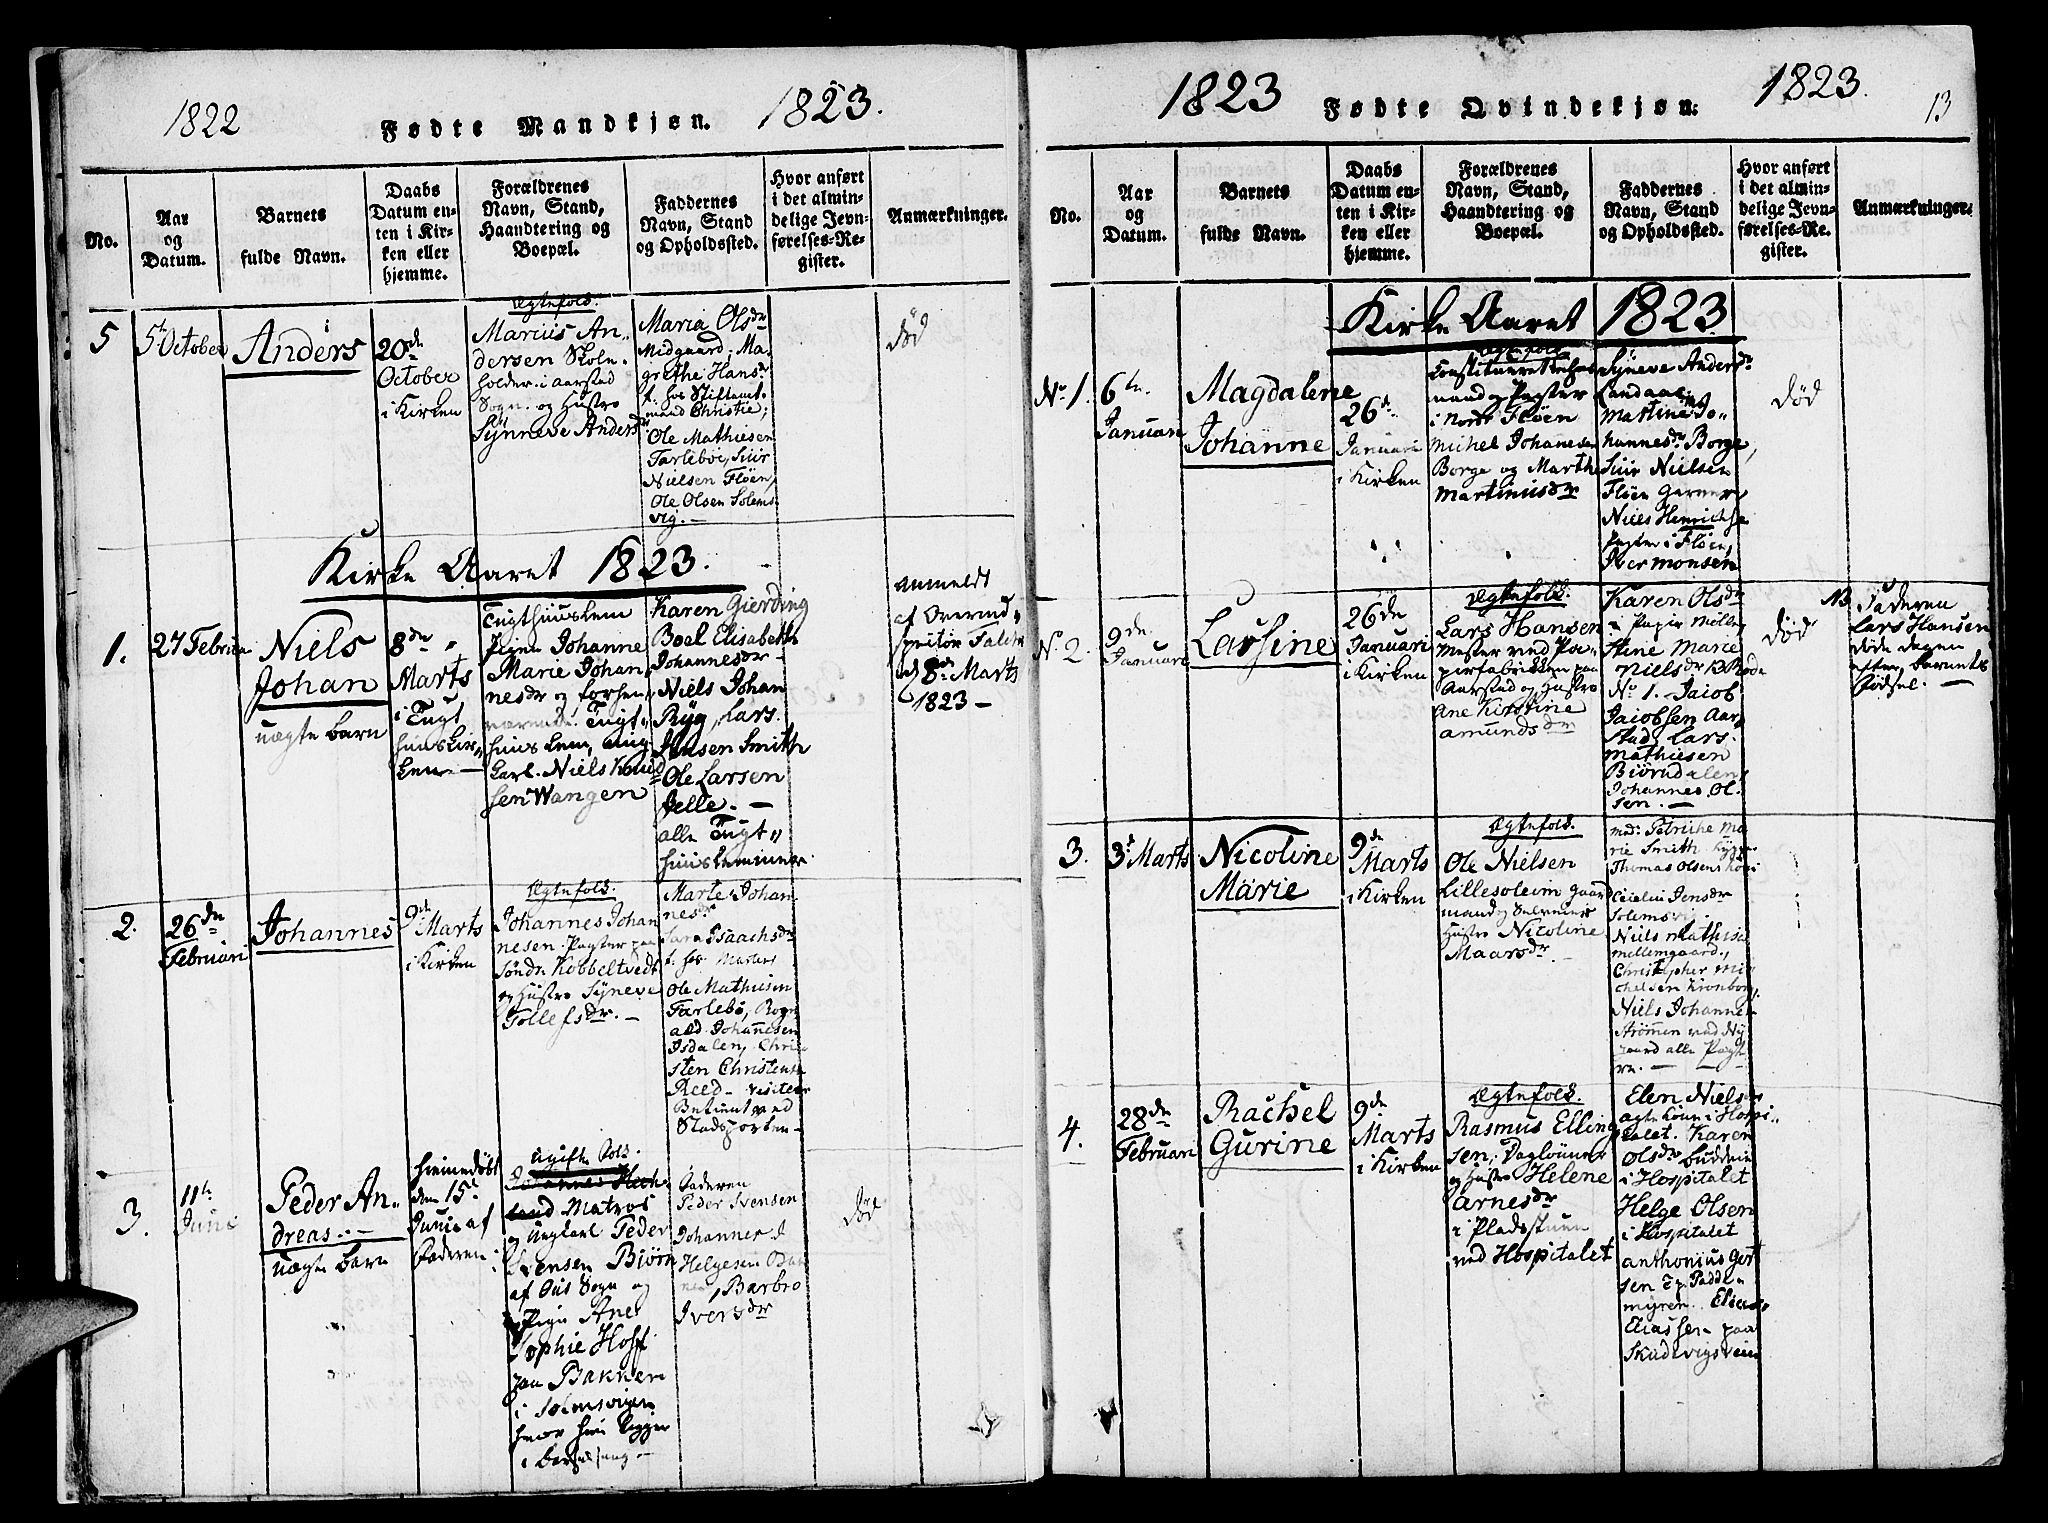 1822
Fødte Mandkjøn.
1823.
No.
Aar
og
Datum.
Barnets
fulde Navn.
Daabs
Datum en-
ten i Kir-
ken eller
hjemme.
Forældrenes
Navn, Stand,
Haandtering og
Boepæl.
Faddernes
Navn, Stand
og Opholdssted.
Hvor anført
i det almin-
delige Jevn-
førelses-Re-
gister.
Anmærkninger.
5
5t October
Anders
20de
October
i Kirken
Ægtefolk.
Marius An-
dersen Skole-
holder i Aarstad
Sogn og Hustro
Synneve Andersdr
Maria Olsdr
Midgaard, Ma-
grethe Hansdr
t. hos Stiftamt-
mand Christie;
Ole Mathiesen
Tarlebøe, Siur
Nielsen Fløen,
Ole Olsen Solems-
vig.
død
Kirke Aaret 1823.
1.
27 Februari
Niels
Johan
uægte barn
8de
Marts
i Tugt
huuskir-
ken
Tugthuuslem
Pigen Johanne
Marie Johan
nesdr og forhen
værende Tugt-
huus Lem, ung
karl Niels Knud
sen Wangen
Karen Gierding
Boel Elisabeth
Johannesdr
Niels Johan
Ryg, Lars
Jensen Smith
Ole Larsen
Jelle.
alle Tugt-
huuslemmer.
Anmeldt
af Overind-
d 8de Marts
1823
2.
26de
Februari
Johannes
9de
Marts
i Kirken
Ægtefolk.
Johannes Johan
nesen Pagter paa
Søndr Kobbeltvedt
og Hustro Syneve
Tollefsdr.
Marte Johan-
nesdr
Sara Isaachsdr
t. hos
Ole Mathiesen
Tarlebø, Rogn
ald Johannesen
Isdalen, Chri-
sten Christensen
Reed visiteur
Betient ved
Stadsporten
3.
11te
Junii
Peder An-
dreas.
uægte barn
hiemmedøbt
den 15de
Junii af
Faderen
Ugifte Folk.
Matros
og Ungkarl Peder
Ivensen Biørn
af Ous Sogn og
Pige Ane
Sophie Hoff
paa Bakken
i Solemsvigen
hvor hun ligger
i barselseng
Faderen
Peder Ivensen
Johannes J
Helgesen
Barbro
Iversdr
død
1823
Fødte Qvindekjøn.
1823.
13
No.
Aar
og
Datum.
Barnets
fulde Navn.
Daabs
Datum en-
ten i Kir-
ken eller
hjemme.
Forældrenes
Navn, Stand,
Haandtering og
Boepæl.
Faddernes
Navn, Stand
og Opholdssted.
Hvor anført
i det almin-
delige Jevn-
førelses-Re-
gister.
Anmærkninger.
Kirke Aaret 1823
No 1.
6te
Januari
Magdalene
Johanne
26de
Januari
i Kirken
Ægtefolk
mand og Pagter
i Nore Fløen
Michel Johanesen
Borge og Marthe
Martinusdr
Syneve Andersdr
Landaas
Martine Jo-
hannesdr Borge,
Siur Nielsen
Fløen Garver,
Niels Henrichse
Pagter i Fløen,
Iver Monsen
død
No 2.
9de
Januari
Larsine
26de
Januari
i Kirken
Ægtefolk.
Lars Hansen
Mester ved Pa-
pirfabrikken paa
Aarstad og Hustro
Ane Kirstine
Amundsdr
Karen Olsdr
i Papir Møllen
Stine Marie
Nielsdr 13 Rode
No 1. Jacob
Jacobsen Aar-
stad, Lars
Mathiesen
Biørndalen,
Johannes Ol-
sen.
død
NB Faderen
Lars Hansen
døde dagen
efter barnets
fødsel.
3.
3de Marts
Nicoline
Marie
9de
Marts
i Kirken
Ægtefolk.
Ole Nielsen
Lillesoleim gaard
mand og
Hustro Nicoline
Maarsdr.
Mad: Petriche Ma-
rie Smith
Thomas Olsens
Cecelie Jensdr
Solemsvig
Niels Mathisen
Mellemgaard,
Christopher Mi-
chelsen Kronborg,
Niels Johannes
Strømen ved Ny-
gaard alle Pagt-
re.
4.
28de
Februari
Rachel
Gurine
9de
Marts
i Kirken
Ægtefolk.
Rasmus Elling-
sen, Daglønner
og Hustro Helene
Arnesdr
i Pladsstuen
ved Hospitalet
Elen Niels
i Hospi-
talet. Karen
Olsdr buddeie
i Hospitalet
Helge Olsen
i Hospitalet
Anthonius Gert
sen Padde-
myren. Elias
Eliassen paa
Skudevigsveien